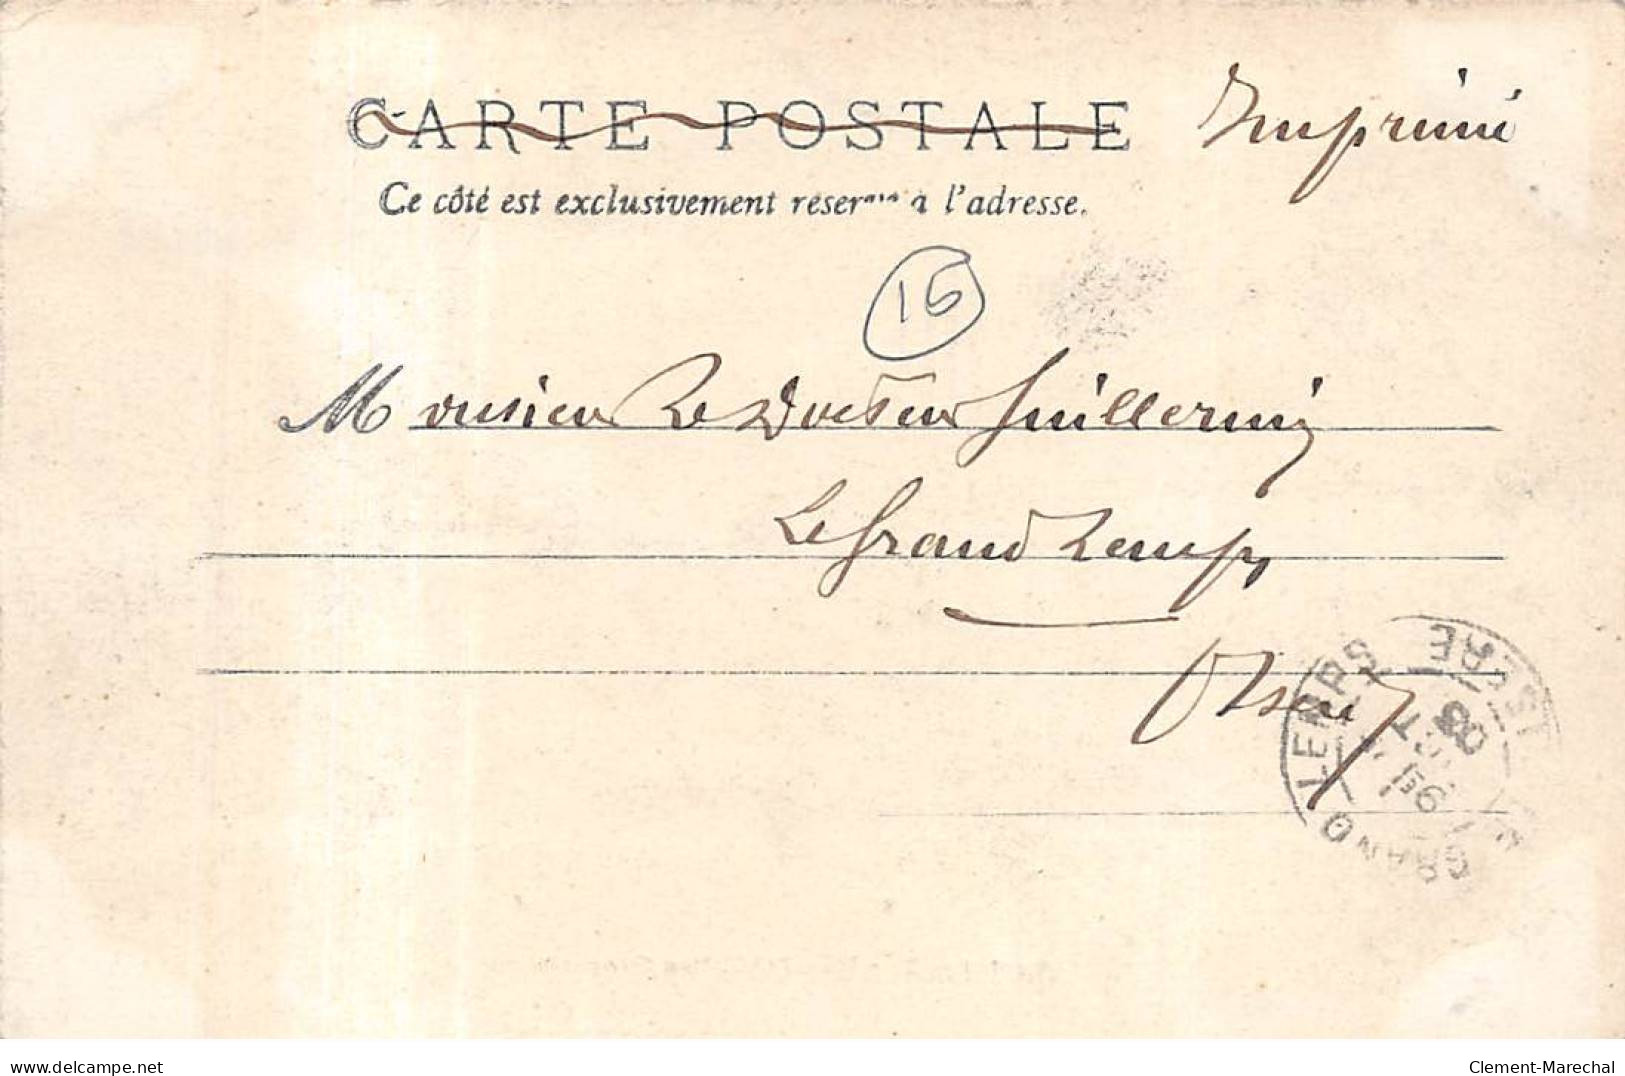 CARTE POSTALE
Imprimé
Ce côté est exclusivement réservé à l'adresse.
16
Monsieur Le Docteur Guillermin
Le Grand Lemps
Isère
GRAND LEMPS ISÈRE
delcampe.net
Clement-Marechal